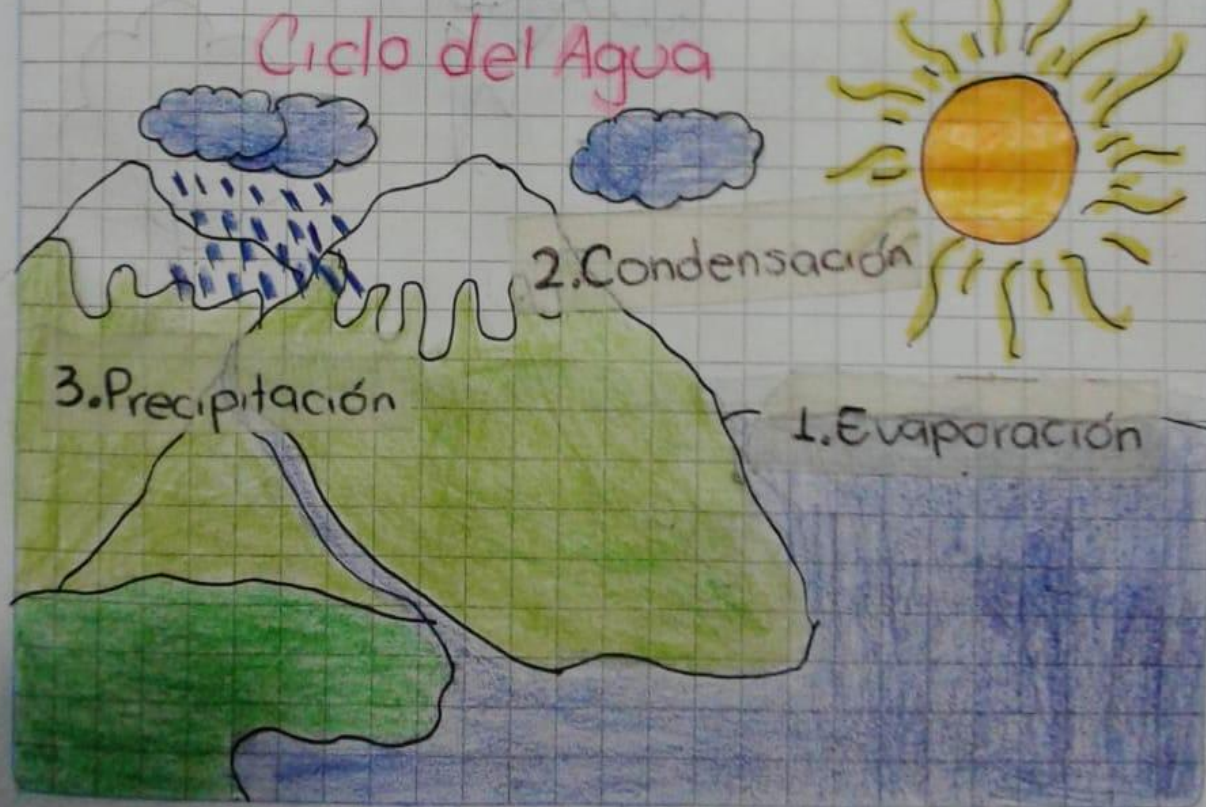 Ciclo del Agua
2.Condensación
3.Precipitación
1.Evaporación